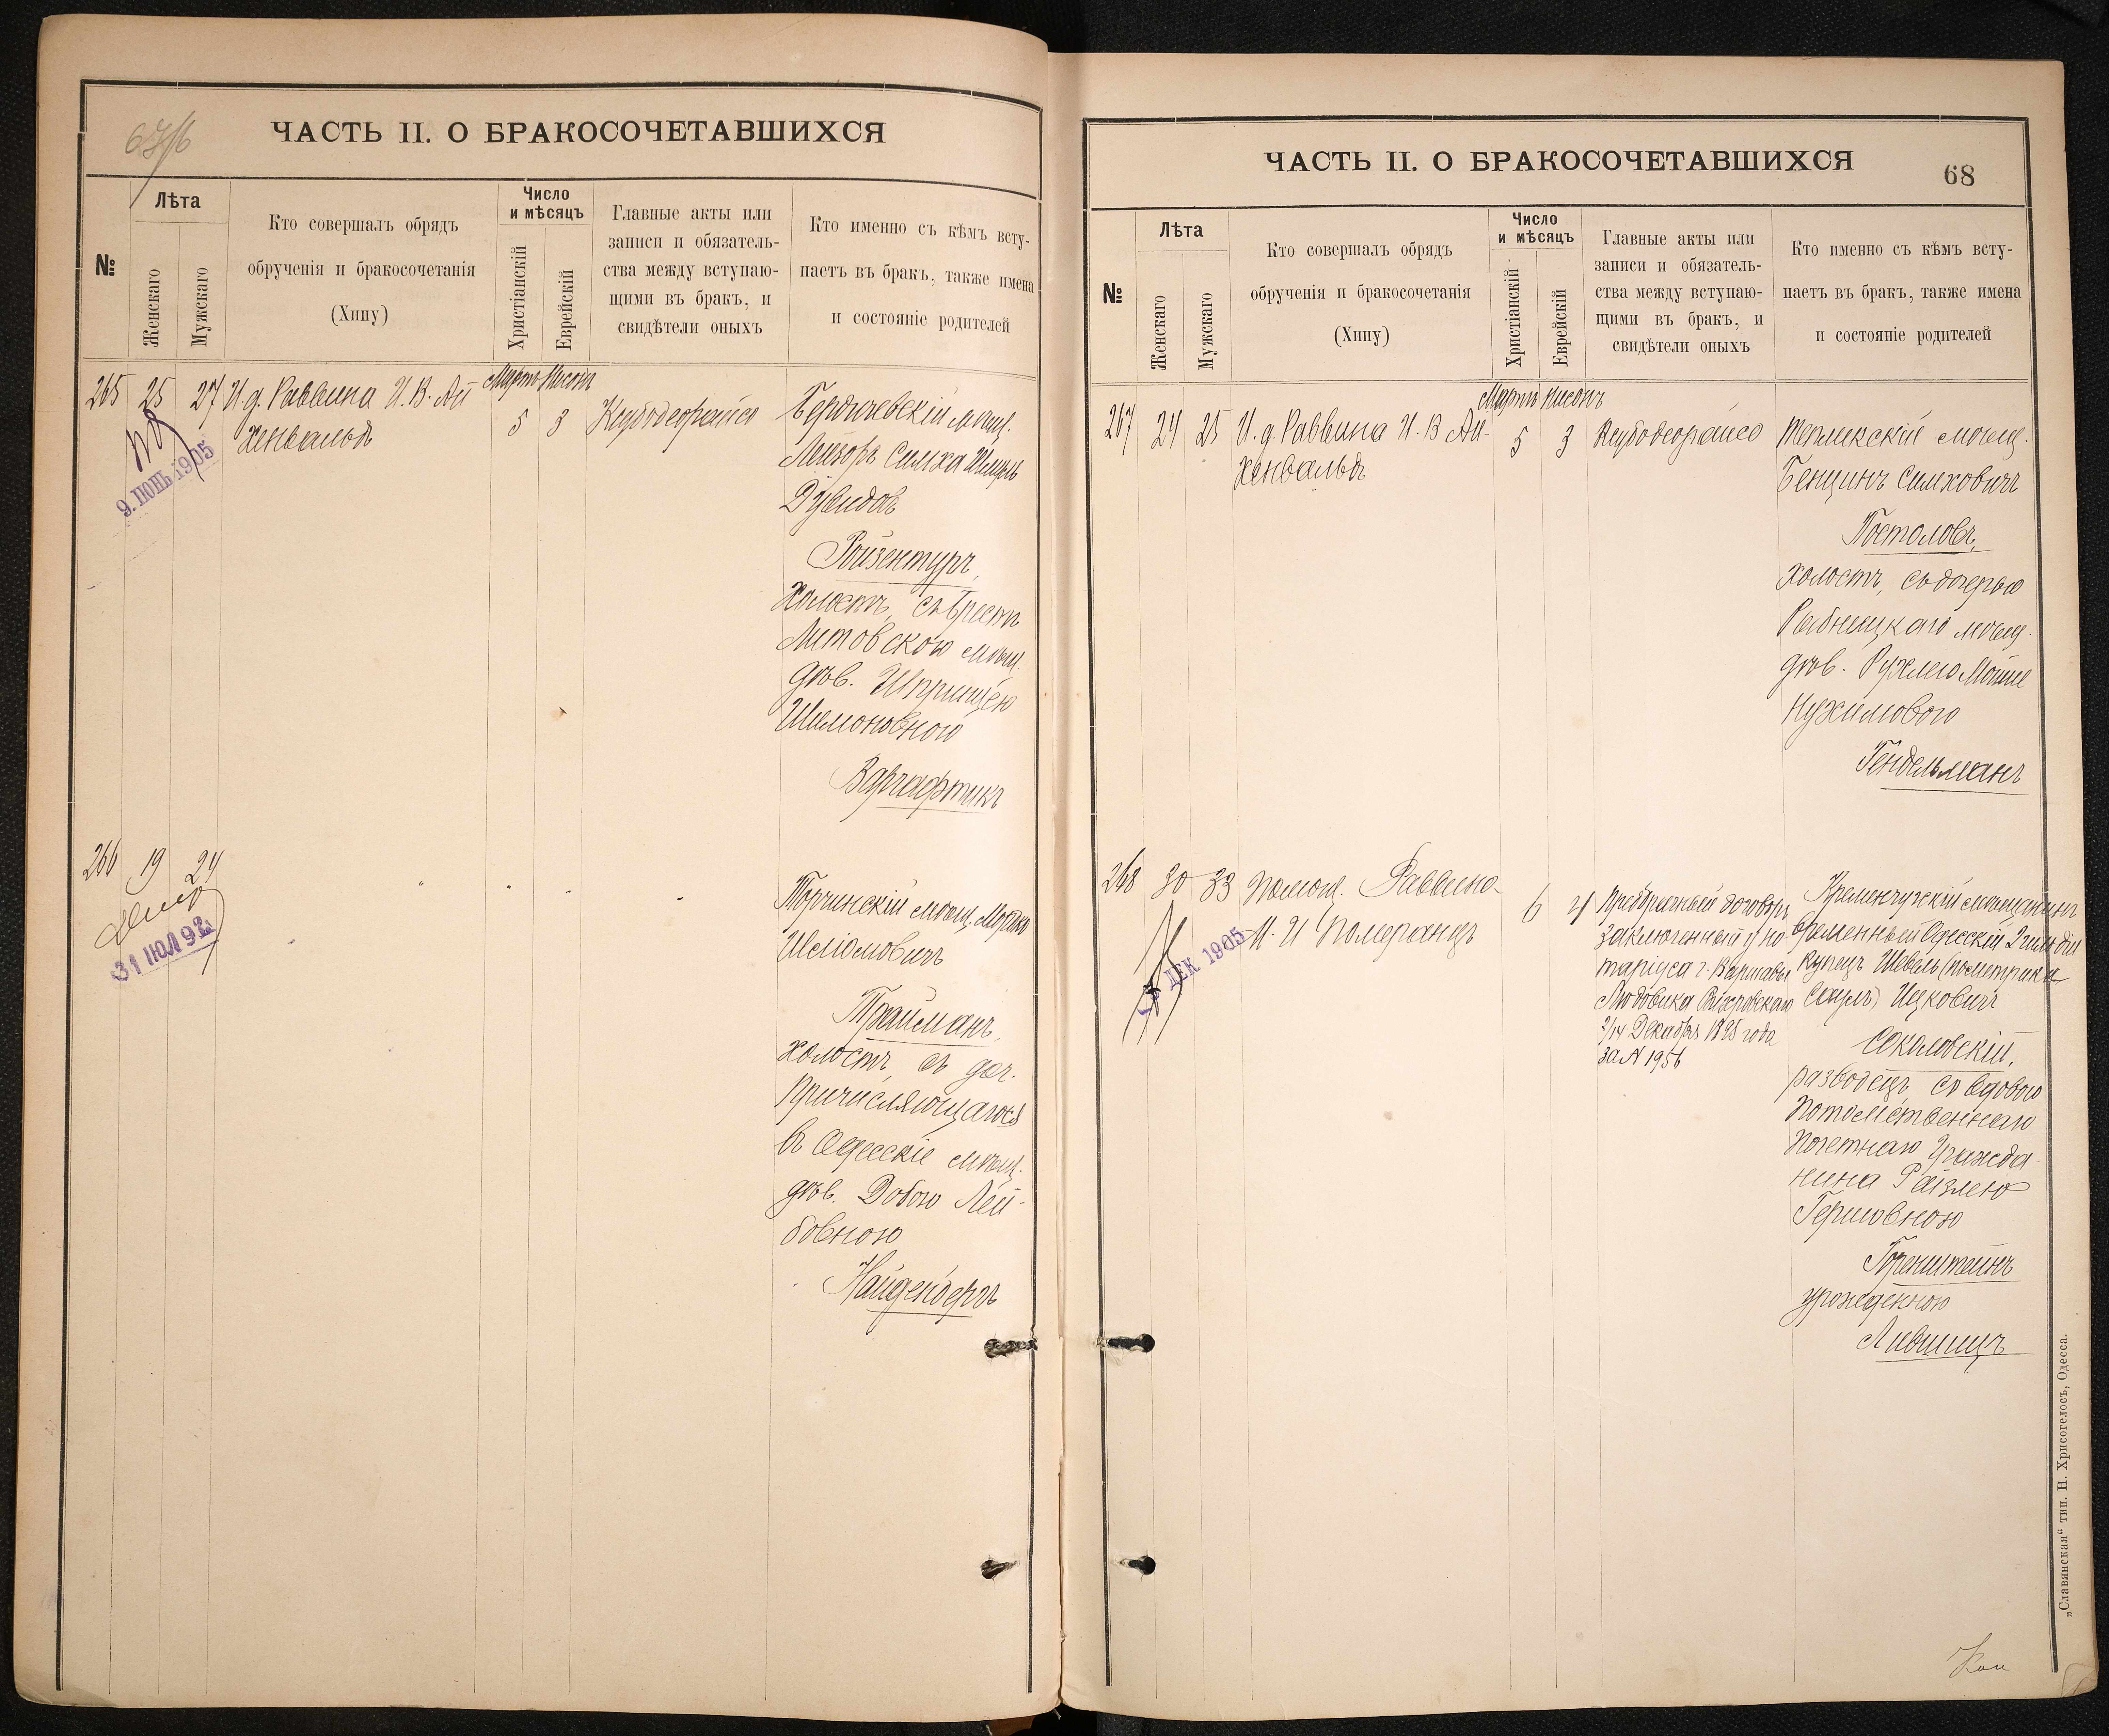 67/б
ЧАСТЬ II. О БРАКОСОЧЕТАВШИХСЯ
№
Лѣта
Женскаго
Мужскаго
Кто совершалъ обрядъ
обрученія и бракосочетанія
(Хипу)
Число
и мѣсяцъ
Христіанскій
Еврейскій
Главные акты или
записи и обязатель-
ства между вступаю-
щими въ бракъ, и
свидѣтели оныхъ
Кто именно съ кѣмъ всту-
паетъ въ бракъ, также имена
и состояніе родителей
265 25 27 И.д. Раввина И.В. Ай
хенвальдъ
Мартъ Нисонъ
5 3
Ксубодеорайсо
Бердичевскій мѣщ.
Лейзоръ Симха Шмуль
Дувидовъ
Ройзентуръ,
холостъ, съ Брестъ
Литовскою мѣщ.
дѣв. Шпринцею
Шимоновною
Варгафтикъ
9. ІЮНЬ 1905
266 19 24
Торчинскій мѣщ. Мордко
Шліомовичъ
Трайманъ,
холостъ, съ доч.
причисляющагося
въ Одесскіе мѣщ.
дѣв. Добою Лей-
бовною
Найденбергъ
31 ІЮЛ 92
ЧАСТЬ II. О БРАКОСОЧЕТАВШИХСЯ
68
№
Лѣта
Женскаго
Мужскаго
Кто совершалъ обрядъ
обрученія и бракосочетанія
(Хипу)
Число
и мѣсяцъ
Христіанскій
Еврейскій
Главные акты или
записи и обязатель-
ства между вступаю-
щими въ бракъ, и
свидѣтели оныхъ
Кто именно съ кѣмъ всту-
паетъ въ бракъ, также имена
и состояніе родителей
267 24 25 И.д. Раввина И.В Ай-
хенвальдъ
Мартъ Нисонъ
5 3
Ксубодеорайсо
мѣщ.
Бенціинъ Симховичъ
Постоловъ,
холостъ, съ дочерью
Рыбницкаго мѣщ.
дѣв. Рухлею Мошко
Нухимовою
Гендельманъ
268 30 33 Помощ. Раввина
М. И Померанцъ
6 4
Предбрачный договоръ
заключенный у но-
таріуса г. Варшавы
Людовика
2/14 Декабря 1898 года
за N 1956
Кременчугскій мѣщанинъ
временный Одесскій 2 гильдіи
купецъ Шевель (по метрикѣ
Саулъ) Ицковичъ
Соколовскій,
разводецъ, съ вдовою
потомственнаго
почетнаго гражда-
нина Райзлею
Гершовною
Горенштейнъ
урожденною
Лившицъ
ДЕК 1905
„Славянская“ тип. Н. Хрисогелосъ, Одесса.